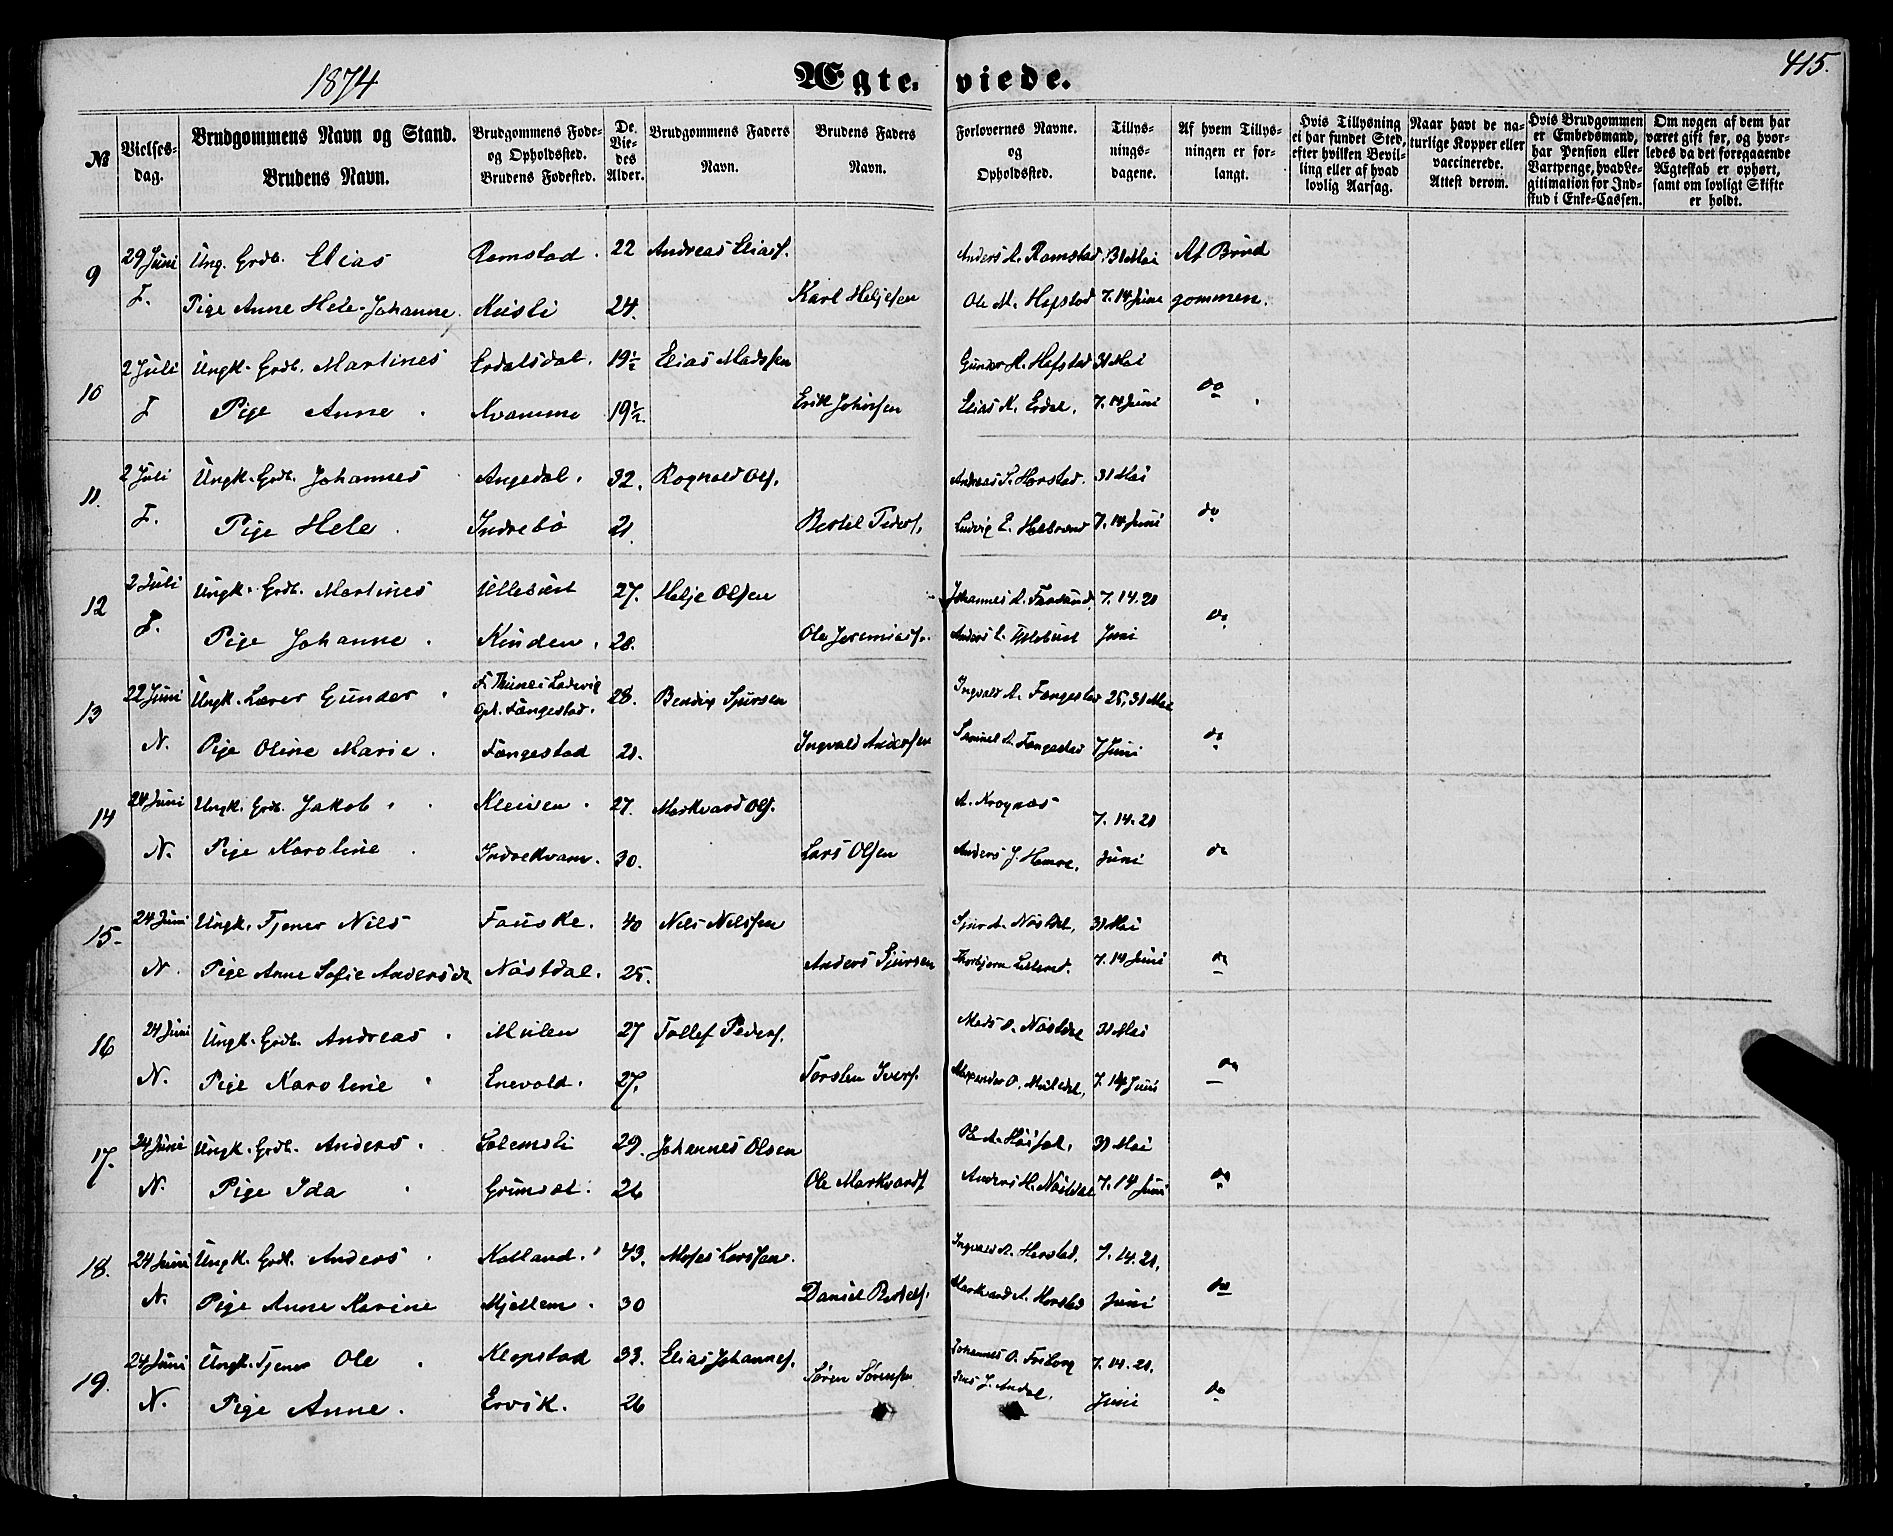 1874
Ægteviede.
415.
№
Vielses-dag.
Brudgommens Navn og Stand.
Brudens Navn.
Brudgommens Føde- og Opholdssted.
Brudens Fødested.
De Viedes Alder.
Brudgommens Faders Navn.
Brudens Faders Navn.
Forlovernes Navne. og Opholdssted.
Tillysningsdagene.
Af hvem Tillysningen er forlangt.
Hvis Tillysning ei har fundet Sted, efter hvilken Bevilling eller af hvad lovlig Aarsag.
Naar havt de naturlige Kopper eller vaccinerede. Attest derom.
Hvis Brudgommen er Embedsmand, har Pension eller Vartpenge, hvad Legitimation for Indskud i Enke-Cassen.
Om nogen af dem har været gift før, og hvorledes da det foregaaende Ægteskab er ophørt, samt om lovligt Skifte er holdt.
9 29 Juni Ung. Grdb. Elias Ramstad. 22 Andreas Eliass. Anders A. Ramstad 31 Mai At Brud
F. Pige Anne Hele Johanne. 24. Karl Heljesen Ole M. Hafstad 7. 14 Juni gommen.
10 2 Juli Ungk. Grdb. Martines Erdalsdal. 19½ Elias Madssen Gunder H. Hafstad 31 Mai
F Pige Anne. Kvamme 19½. Erik Johnssen Elias M. Erdal. 7. 14 Juni do
11. 2 Juli Ungk. Grdb. Johannes Angedal. 32. Rognald Ols. Andreas S. Horstad. 31 Mai
F. Pige Hele. Indrebö 21. Bertel Peders. Ludvig E. 7. 14 Juni do
12 2 Juli Ungk. Grdb. Martines 27. Helje Olsen Johannes A. 7. 14. 21
F. Pige Johanne. Kinden. 28. Ole Jeremiass. Anders Juni do
13 22 Juni Ungk. Lærer Gunder. Opl. Længestad. 28. Bendix Sjursen Ingvald A. Fængestad 25, 31 Mai
N. Pige Oline Marie. Fængestad 21. Ingvald Andersen Samuel A. Fængestad 7 Juni do
14 24 Juni Ungk. Grdb. Jakob. Kleiven. 27. Markvard Ols. A. Krognæs 7. 14. 21
N. Pige Karoline. Indrekvam. 30. Lars Olsen Anders J. Hamre. Juni do
15. 24 Juni Ungk. Tjener Nils Fauske. 40 Nils Nilssen Sjur A. Nösdal. 31 Mai
N. Pige Anne Sofie Andersdr. Nöstdal. 25. Anders Sjursen Thorbjørn 7. 14 Juni do
16 24 Juni Ungk. Grdb. Andreas. Mulen 27 Tollef Peders. Mads O. Nöstdal 31 Mai
N. Pige Karoline. Enevold. 27. Torsten Ivers. Alexander O. 7. 14 Juni do
17. 24 Juni Ungk. Grdb. Anders. Solemsli 29. Johannes Olsen Ole A. 31 Mai
N. Pige Ida. Grimset. 26 Ole Markvards. Anders H. Nöstdal 7. 14 Juni do
18. 24 Juni Ungk. Grdb. Anders. Kalland. 43. Moses Larssen. Ingvald A. Horstad. 7. 14. 21.
N. Pige Anne Karine Mjellem. 30 Daniel Bertels. Markvard A. Horstad Juni do
19. 24 Juni Ungk. Tjener Ole. Klopstad 33. Elias Johanness. Johannes O. Friborg 7. 14. 21.
N. Pige Anne. Ervik. 26 Søren Sørensen Jens J. Andal. Juni do